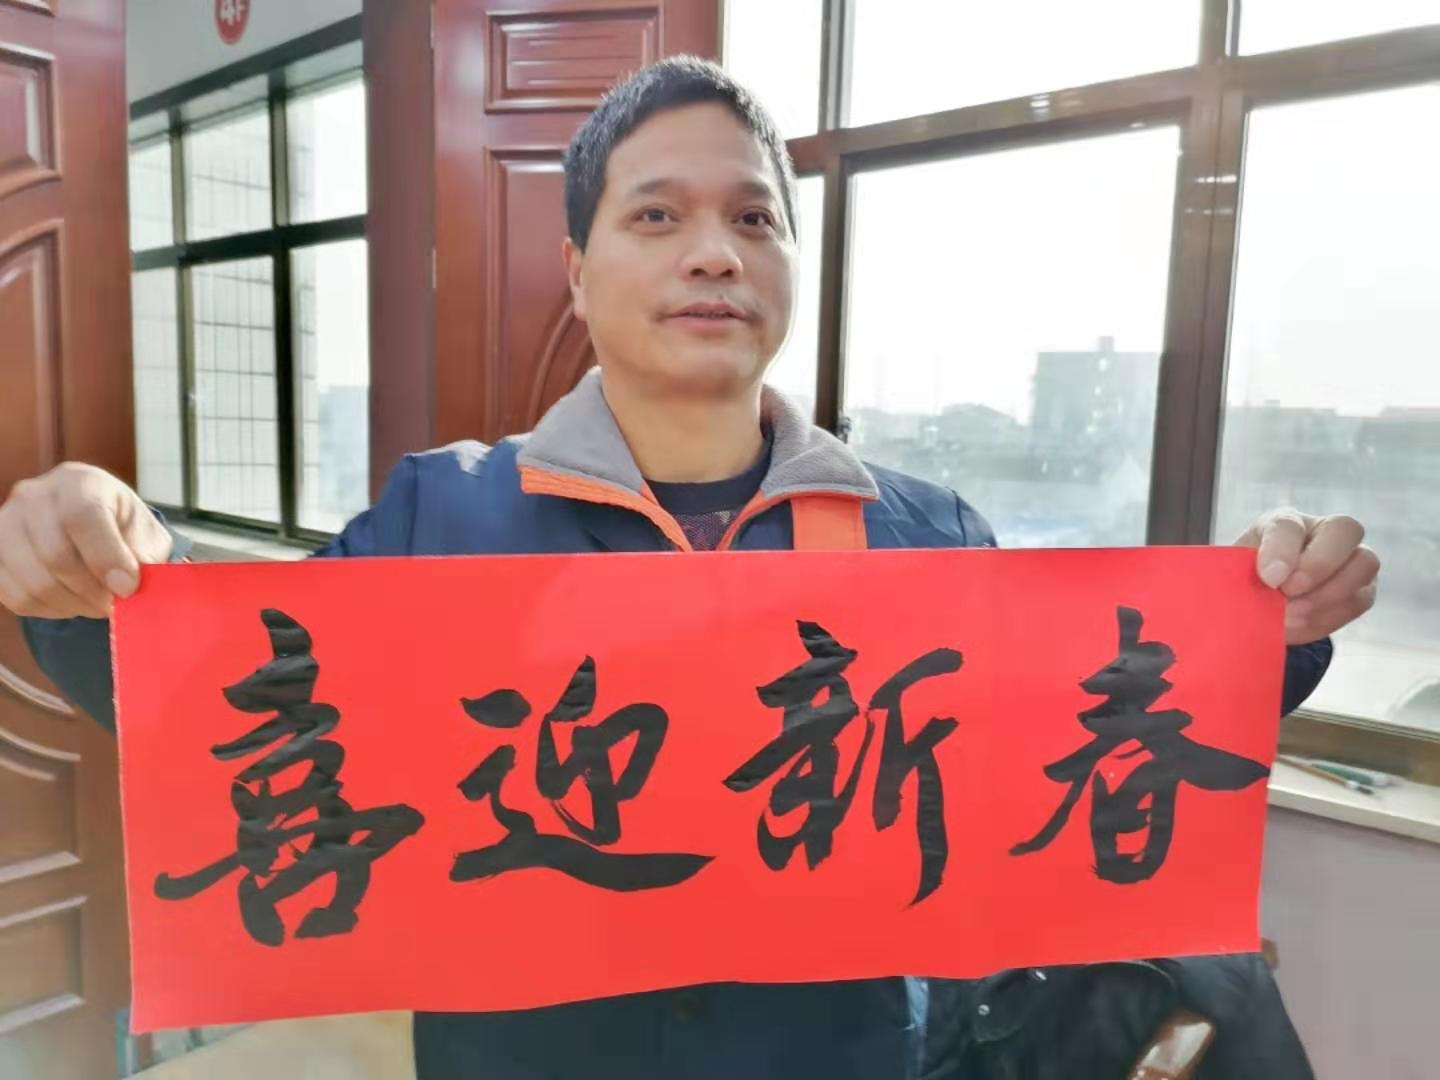 4F
喜迎新春